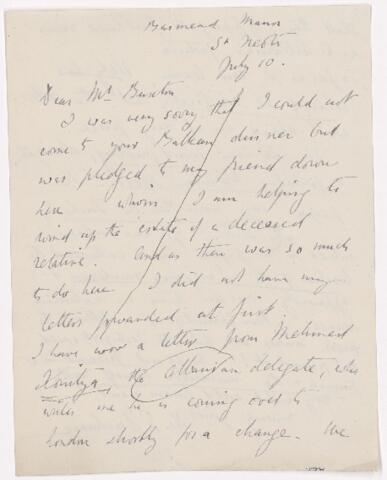 Basmead Manor
St Neots
July 10.
Dear Mr Buxton
I was very sorry that I could not
come to your Balkan dinner but
was pledged to my friend down
here whom I am helping to
wind up the estate of a deceased
relative. And as there was so much
to do here I did not have my
letters forwarded at first.
I have now a letter from Mehmed
Konitza, the Albanian delegate, who
writes me he is coming over to
London shortly for a change. We